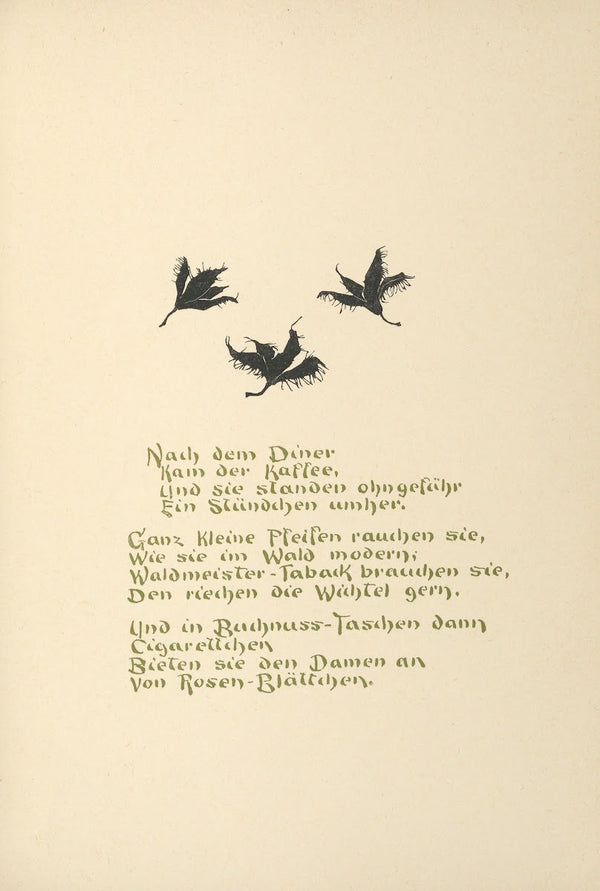 Nach dem Diner
Kam der Kaffee,
Und sie standen ohngefähr
Ein Stündchen umher.
Ganz kleine Pfeifen rauchen sie,
Wie sie im Wald modern;
Waldmeister-Taback brauchen sie,
Den riechen die Wichtel gern.
Und in Buchnuss-Taschen dann
Cigarettchen
Bieten sie den Damen an
Von Rosen-Blättchen.